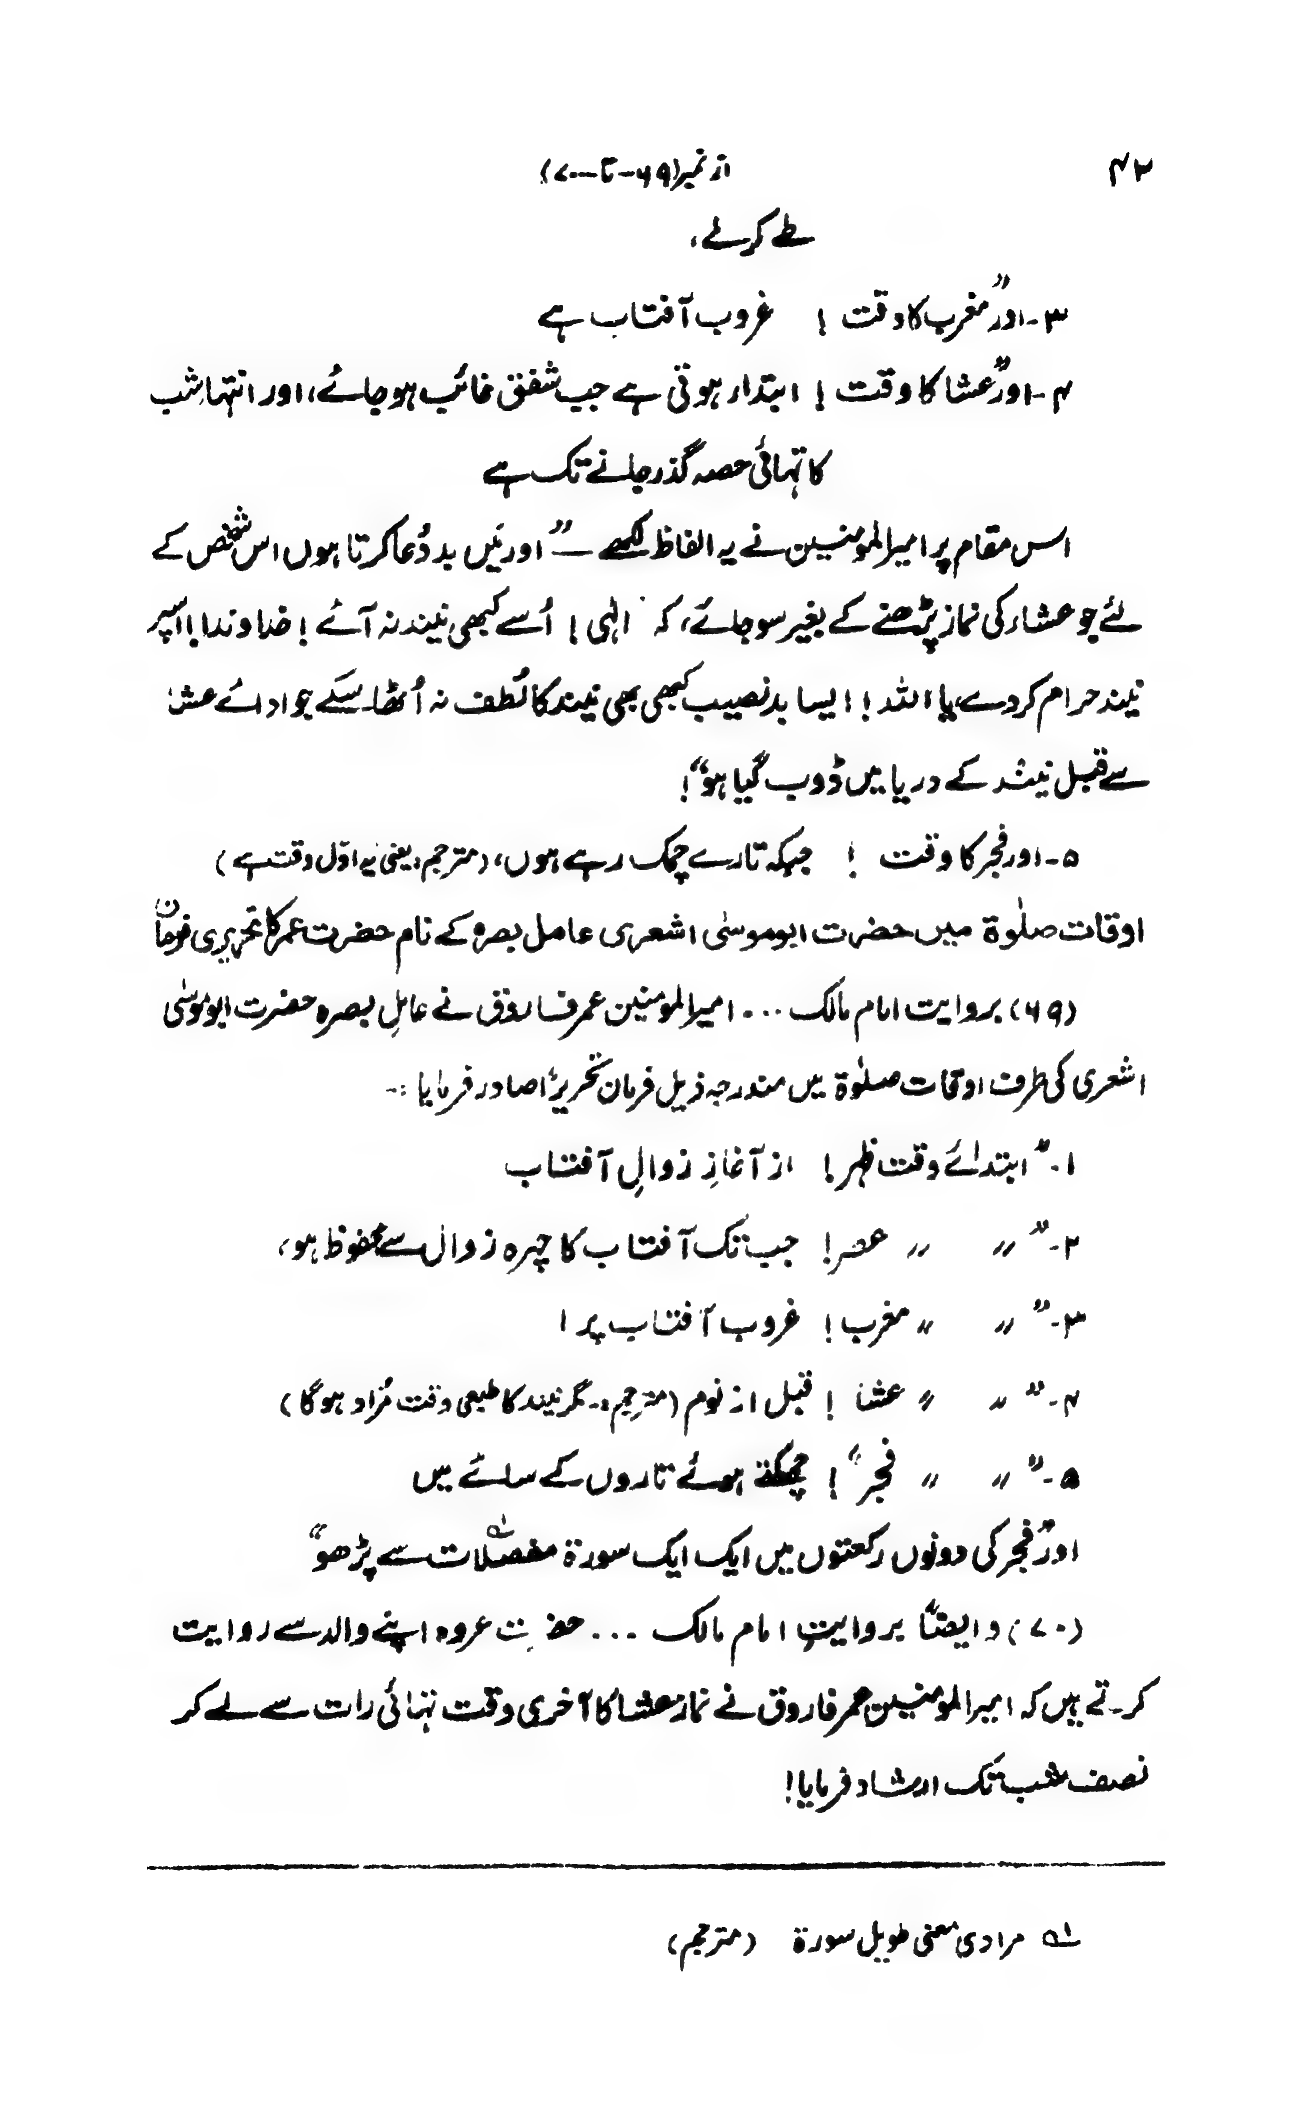 ۴۲
از نمبر (۶۹ - تا - ۷۰)
طے کرلے،
۳۔ اور ”مغرب کا وقت ! غروب آفتاب ہے
۴۔ اور ”عشا کا وقت ! ابتدار ہوتی ہے جب شفق غائب ہو جائے، اور انتہا شب
کا تہائی حصہ گذر جانے تک ہے
اس مقام پر امیر المومنین نے یہ الفاظ لکھے — ”اور میں بد دُعا کرتا ہوں اس شخص کے
لئے جو عشار کی نماز پڑھنے کے بغیر سو جائے، کہ الٰہی ! اُسے کبھی نیند نہ آئے ! خداوندا ! اسپر
نیند حرام کردے، یا اللہ ! ایسا بدنصیب کبھی بھی نیند کا لُطف نہ اُٹھا سکے جو ادائے عشا
سے قبل نیند کے دریا میں ڈوب گیا ہو“!
۵۔ اور فجر کا وقت ! جبکہ تارے چمک رہے ہوں، (مترجم: یعنی یہ اوّل وقت ہے)
اوقات صلٰوۃ میں حضرت ابوموسٰی اشعری عامل بصرہ کے نام حضرت عمر کا تحریری فرمان
(۶۹) بروایت امام مالک ... امیر المومنین عمر فاروق نے عاملِ بصرہ حضرت ابوموسٰی
اشعری کی طرف اوقات صلٰوۃ میں مندرجہ ذیل فرمان تحریراً صادر فرمایا :-
۱۔ ”ابتدائے وقت ظہر ! از آغازِ زوالِ آفتاب
۲۔ ” 〃 〃 عصر ! جب تک آفتاب کا چہرہ زوال سے محفوظ ہو،
۳۔ ” 〃 〃 مغرب ! غروب آفتاب پر !
۴۔ ” 〃 〃 عشا ! قبل از نوم (مترجم :۔ مگر نیند کا طبعی وقت مُراد ہوگا)
۵۔ ” 〃 〃 فجر“ ! چمکتے ہوئے تاروں کے سائے میں
اور ”فجر کی دونوں رکعتوں میں ایک ایک سورۃ مفصلات؂۱ سے پڑھو“
(۷۰) و ایضاً بروایت امام مالک ... حضرت عروہ اپنے والد سے روایت
کرتے ہیں کہ امیر المومنین عمر فاروق نے نماز عشا کا آخری وقت تہائی رات سے لے کر
نصف شب تک ارشاد فرمایا!
؂۱ مرادی معنی طویل سورۃ (مترجم)